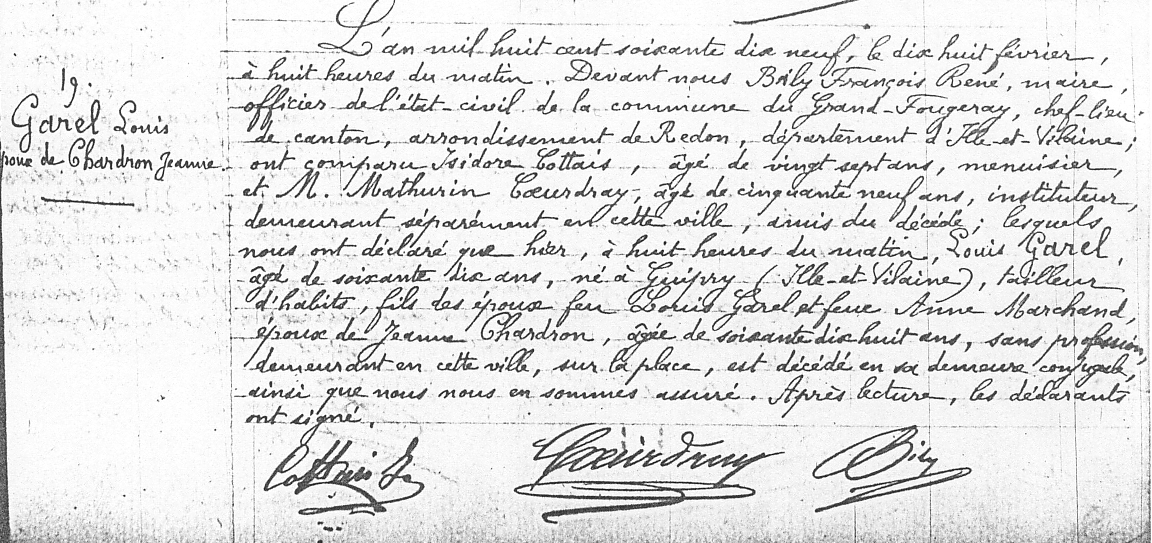 19
Garel Louis
époux de Chardron Jeanne.
L'an mil huit cent soixante dix neuf, le dix huit février,
à huit heures du matin. Devant nous Bily François René, maire,
officier de l'état civil de la commune du Grand-Fougeray, chef-lieu
de canton, arrondissement de Redon, département d'Ille-et-Vilaine;
ont comparu Isidore Cottais, âgé de vingt sept ans, menuisier,
et M. Mathurin Coeurdray, âgé de cinquante neuf ans, instituteur,
demeurant séparément en cette ville, amis du décédé; lesquels
nous ont déclaré que hier, à huit heures du matin, Louis Garel,
âgé de soixante dix ans, né à Guipry (Ille-et-Vilaine), tailleur
d'habits, fils des époux feu Louis Garel et feue Anne Marchand,
époux de Jeanne Chardron, âgée de soixante dix huit ans, sans profession,
demeurant en cette ville, sur la place, est décédé en sa demeure conjugale,
ainsi que nous nous en sommes assuré. Après lecture, les déclarants
ont signé.
Coeurdray Bily